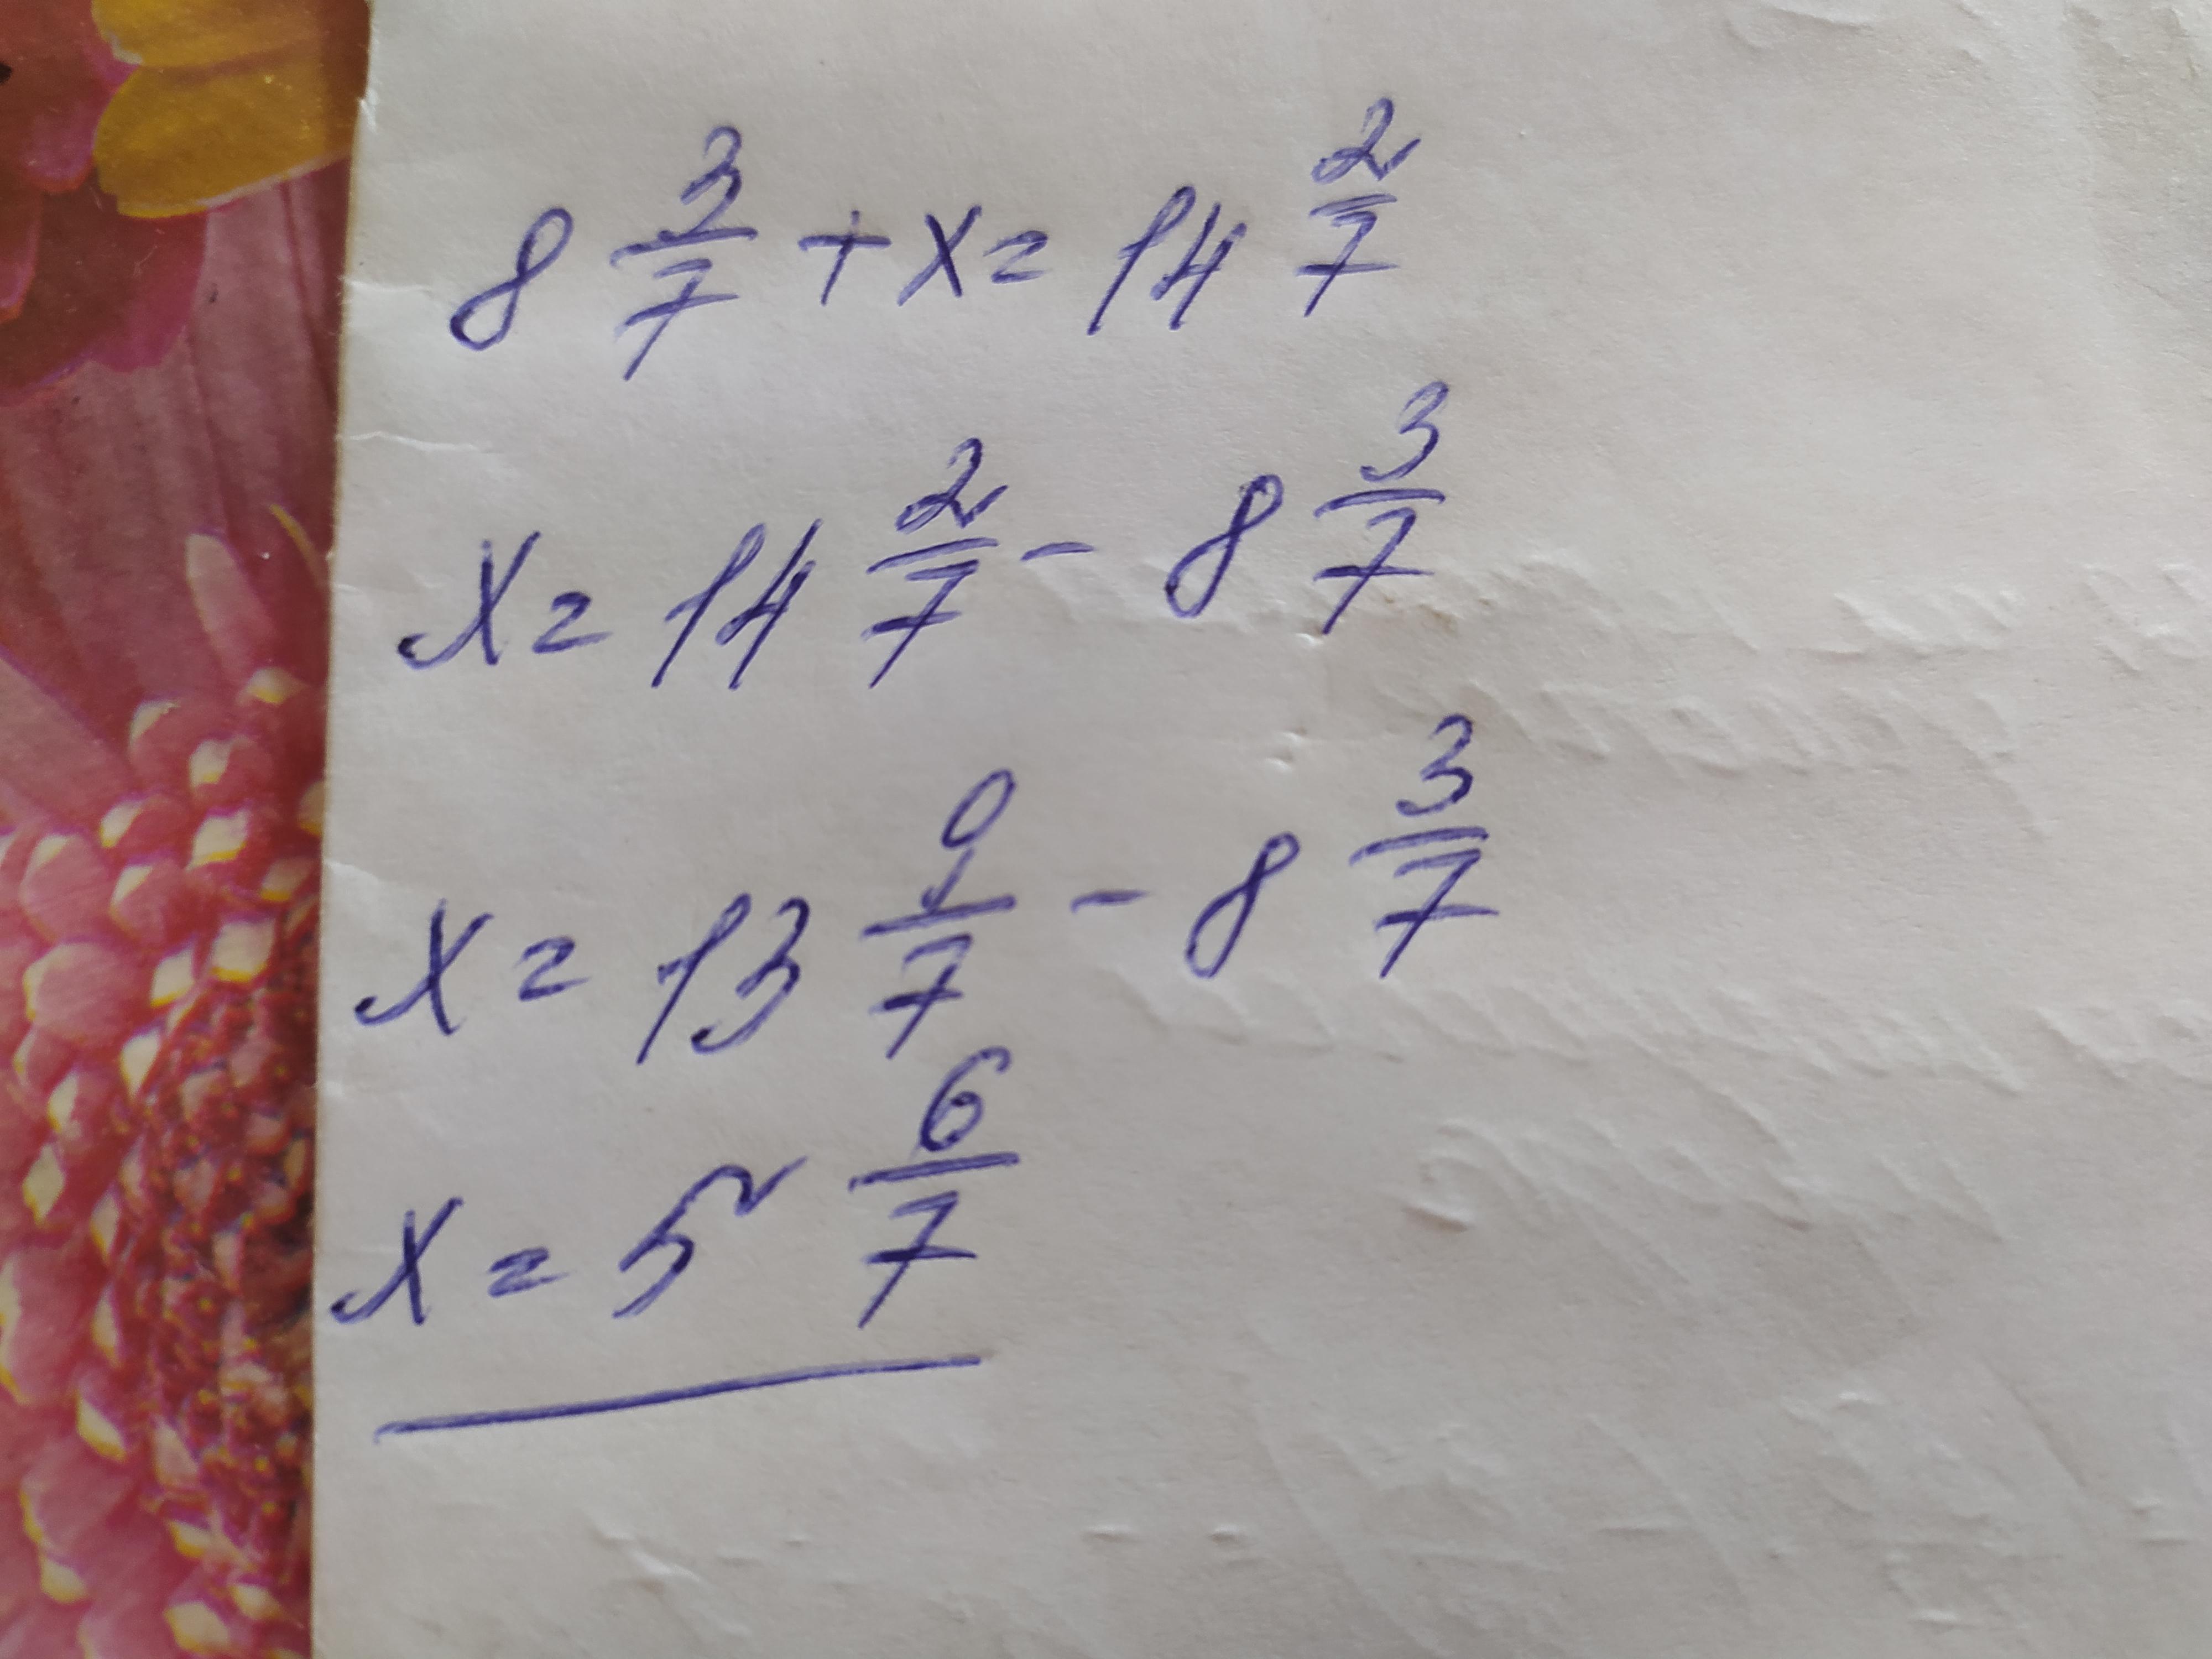 8 3/7 + x = 14 2/7
x = 14 2/7 - 8 3/7
x = 13 9/7 - 8 3/7
x = 5 6/7